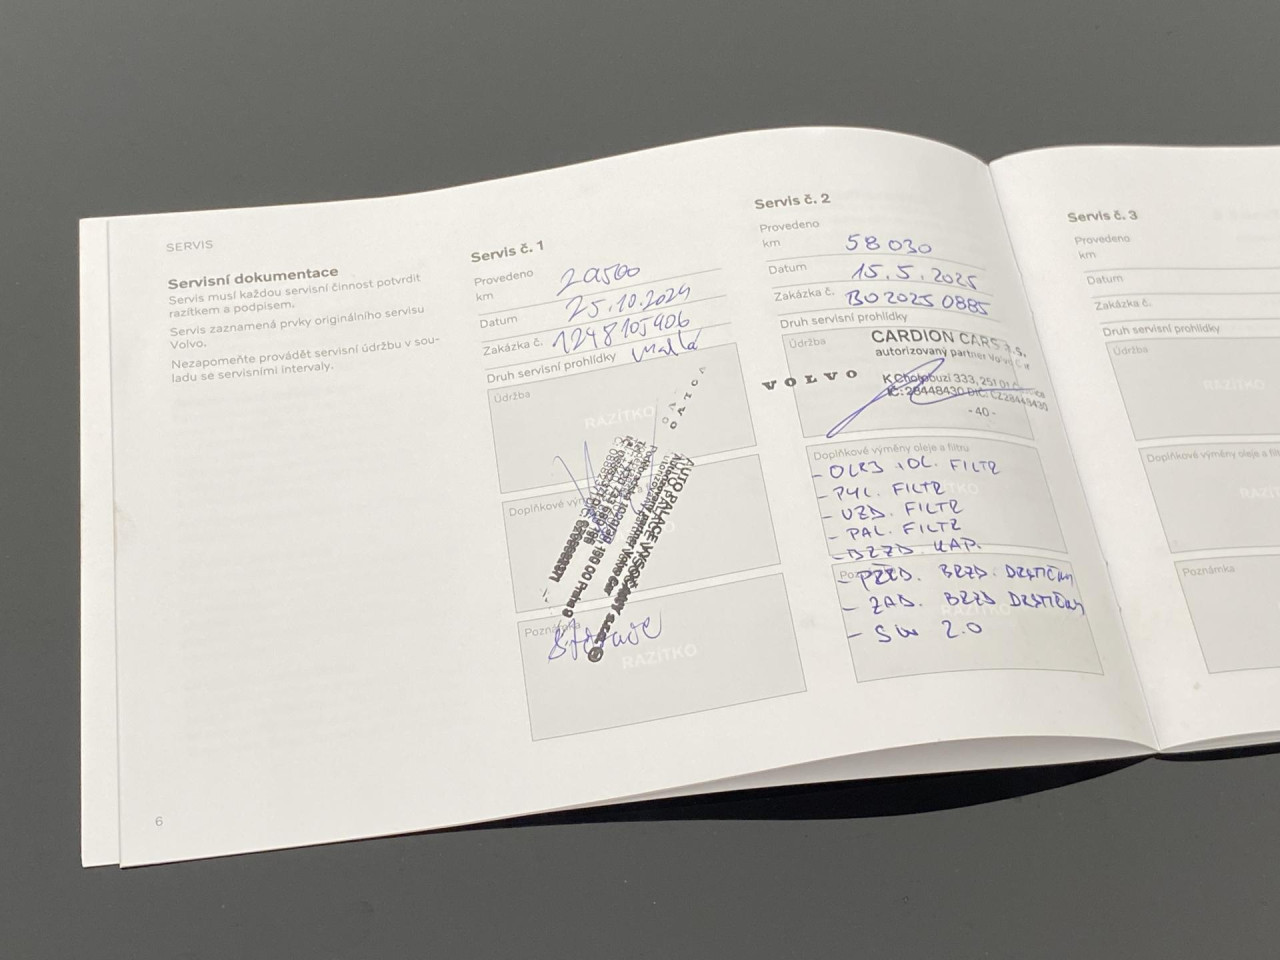 SERVIS
Servisní dokumentace
Servis musí každou servisní činnost potvrdit
razítkem a podpisem.
Servis zaznamená prvky originálního servisu
Volvo.
Nezapomeňte provádět servisní údržbu v sou-
ladu se servisními intervaly.
6
Servis č. 1
Provedeno
km
Datum 25.10.2024
Zakázka č. 1248105406
Druh servisní prohlídky malá
Údržba
RAZÍTKO
VOLVO
AUTO PALACE VYSOČANY s.r.o.
190 00 Praha 9
Poznámka
RAZÍTKO
Servis č. 2
Provedeno
km 58 030
Datum 15.5.2025
Zakázka č. BO2025 0885
Druh servisní prohlídky
Údržba
VOLVO
CARDION CARS
autorizovaný partner
333, 251 01
IČ: 28448430 DIČ: CZ28448430
- 40 -
Doplňkové výměny oleje a filtru
- OLEJ + OL. FILTR
- PYL. FILTR
- VZD. FILTR
- PAL. FILTR
- BRZD. KAP.
- PŘED. BRZD. DESTIČKY
- ZAD. BRZD DESTIČKY
- SW 2.0
Servis č. 3
Provedeno
km
Datum
Zakázka č.
Druh servisní prohlídky
Údržba
Poznámka